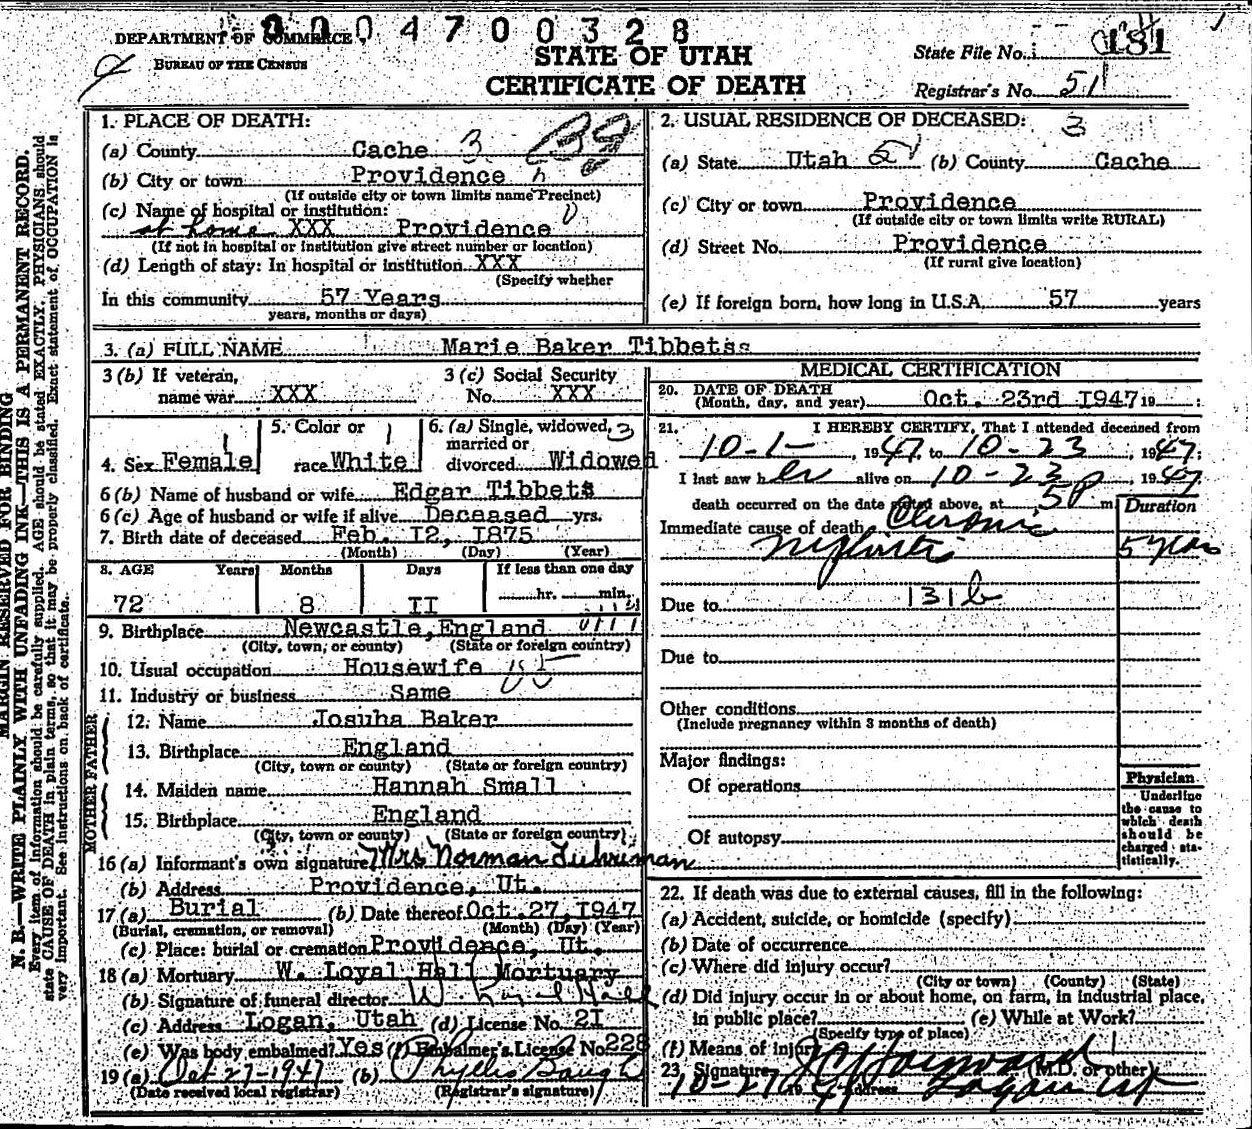 0004700328
DEPARTMENT OF COMMERCE
BUREAU OF THE CENSUS
STATE OF UTAH
CERTIFICATE OF DEATH
State File No. 181
Registrar's No. 51
MARGIN RESERVED FOR BINDING
N. B.—WRITE PLAINLY WITH UNFADING INK—THIS IS A PERMANENT RECORD.
Every item of information should be carefully supplied. AGE should be stated EXACTLY. PHYSICIANS should
state CAUSE OF DEATH in plain terms, so that it may be properly classified. Exact statement of OCCUPATION is
very important. See instructions on back of certificate.
1. PLACE OF DEATH:
(a) County Cache 3
(b) City or town Providence
(If outside city or town limits name Precinct)
(c) Name of hospital or institution:
at home XXX Providence
(If not in hospital or institution give street number or location)
(d) Length of stay: In hospital or institution XXX
(Specify whether
In this community 57 Years
years, months or days)
2. USUAL RESIDENCE OF DECEASED: 3
(a) State Utah 51 (b) County Cache
(c) City or town Providence
(If outside city or town limits write RURAL)
(d) Street No. Providence
(If rural give location)
(e) If foreign born, how long in U.S.A. 57 years
3. (a) FULL NAME Marie Baker Tibbets
3 (b) If veteran,
name war XXX
3 (c) Social Security
No. XXX
4. Sex Female 1
5. Color or
race White 1
6. (a) Single, widowed, 3
married or
divorced Widowed
6 (b) Name of husband or wife Edgar Tibbets
6 (c) Age of husband or wife if alive Deceased yrs.
7. Birth date of deceased Feb. I2, I875
(Month) (Day) (Year)
8. AGE Years Months Days If less than one day
72 8 II hr. min.
9. Birthplace Newcastle, England
(City, town, or county) (State or foreign country)
10. Usual occupation Housewife
11. Industry or business Same
FATHER
12. Name Josuha Baker
13. Birthplace England
(City, town or county) (State or foreign country)
MOTHER
14. Maiden name Hannah Small
15. Birthplace England
(City, town or county) (State or foreign country)
16 (a) Informant's own signature Mrs Norman Fuhriman
(b) Address Providence, Ut.
17 (a) Burial (b) Date thereof Oct. 27, I947
(Burial, cremation, or removal) (Month) (Day) (Year)
(c) Place: burial or cremation Providence, Ut.
18 (a) Mortuary W. Loyal Hall Mortuary
(b) Signature of funeral director W. Loyal Hall
(c) Address Logan, Utah (d) License No. 2I
(e) Was body embalmed? Yes (f) Embalmer's License No. 228
19 (a) Oct 27-1947 (b) Phyllis Baugh
(Date received local registrar) (Registrar's signature)
MEDICAL CERTIFICATION
20. DATE OF DEATH
(Month, day, and year) Oct. 23rd I947 19 :
21. I HEREBY CERTIFY, That I attended deceased from
10-1-, 1947, to 10-23, 1947;
I last saw her alive on 10-23, 1947
death occurred on the date stated above, at 5 P m.
Duration
Immediate cause of death Chronic
Nephritis 5 years
Due to 131b
Due to
Other conditions
(Include pregnancy within 3 months of death)
Major findings:
Of operations
Of autopsy
Physician
Underline
the cause to
which death
should be
charged sta-
tistically.
22. If death was due to external causes, fill in the following:
(a) Accident, suicide, or homicide (specify)
(b) Date of occurrence
(c) Where did injury occur?
(City or town) (County) (State)
(d) Did injury occur in or about home, on farm, in industrial place,
in public place? (e) While at Work?
(Specify type of place)
(f) Means of injury
23. Signature Hayward (M.D. or other)
10-27 1947 Address Logan Ut